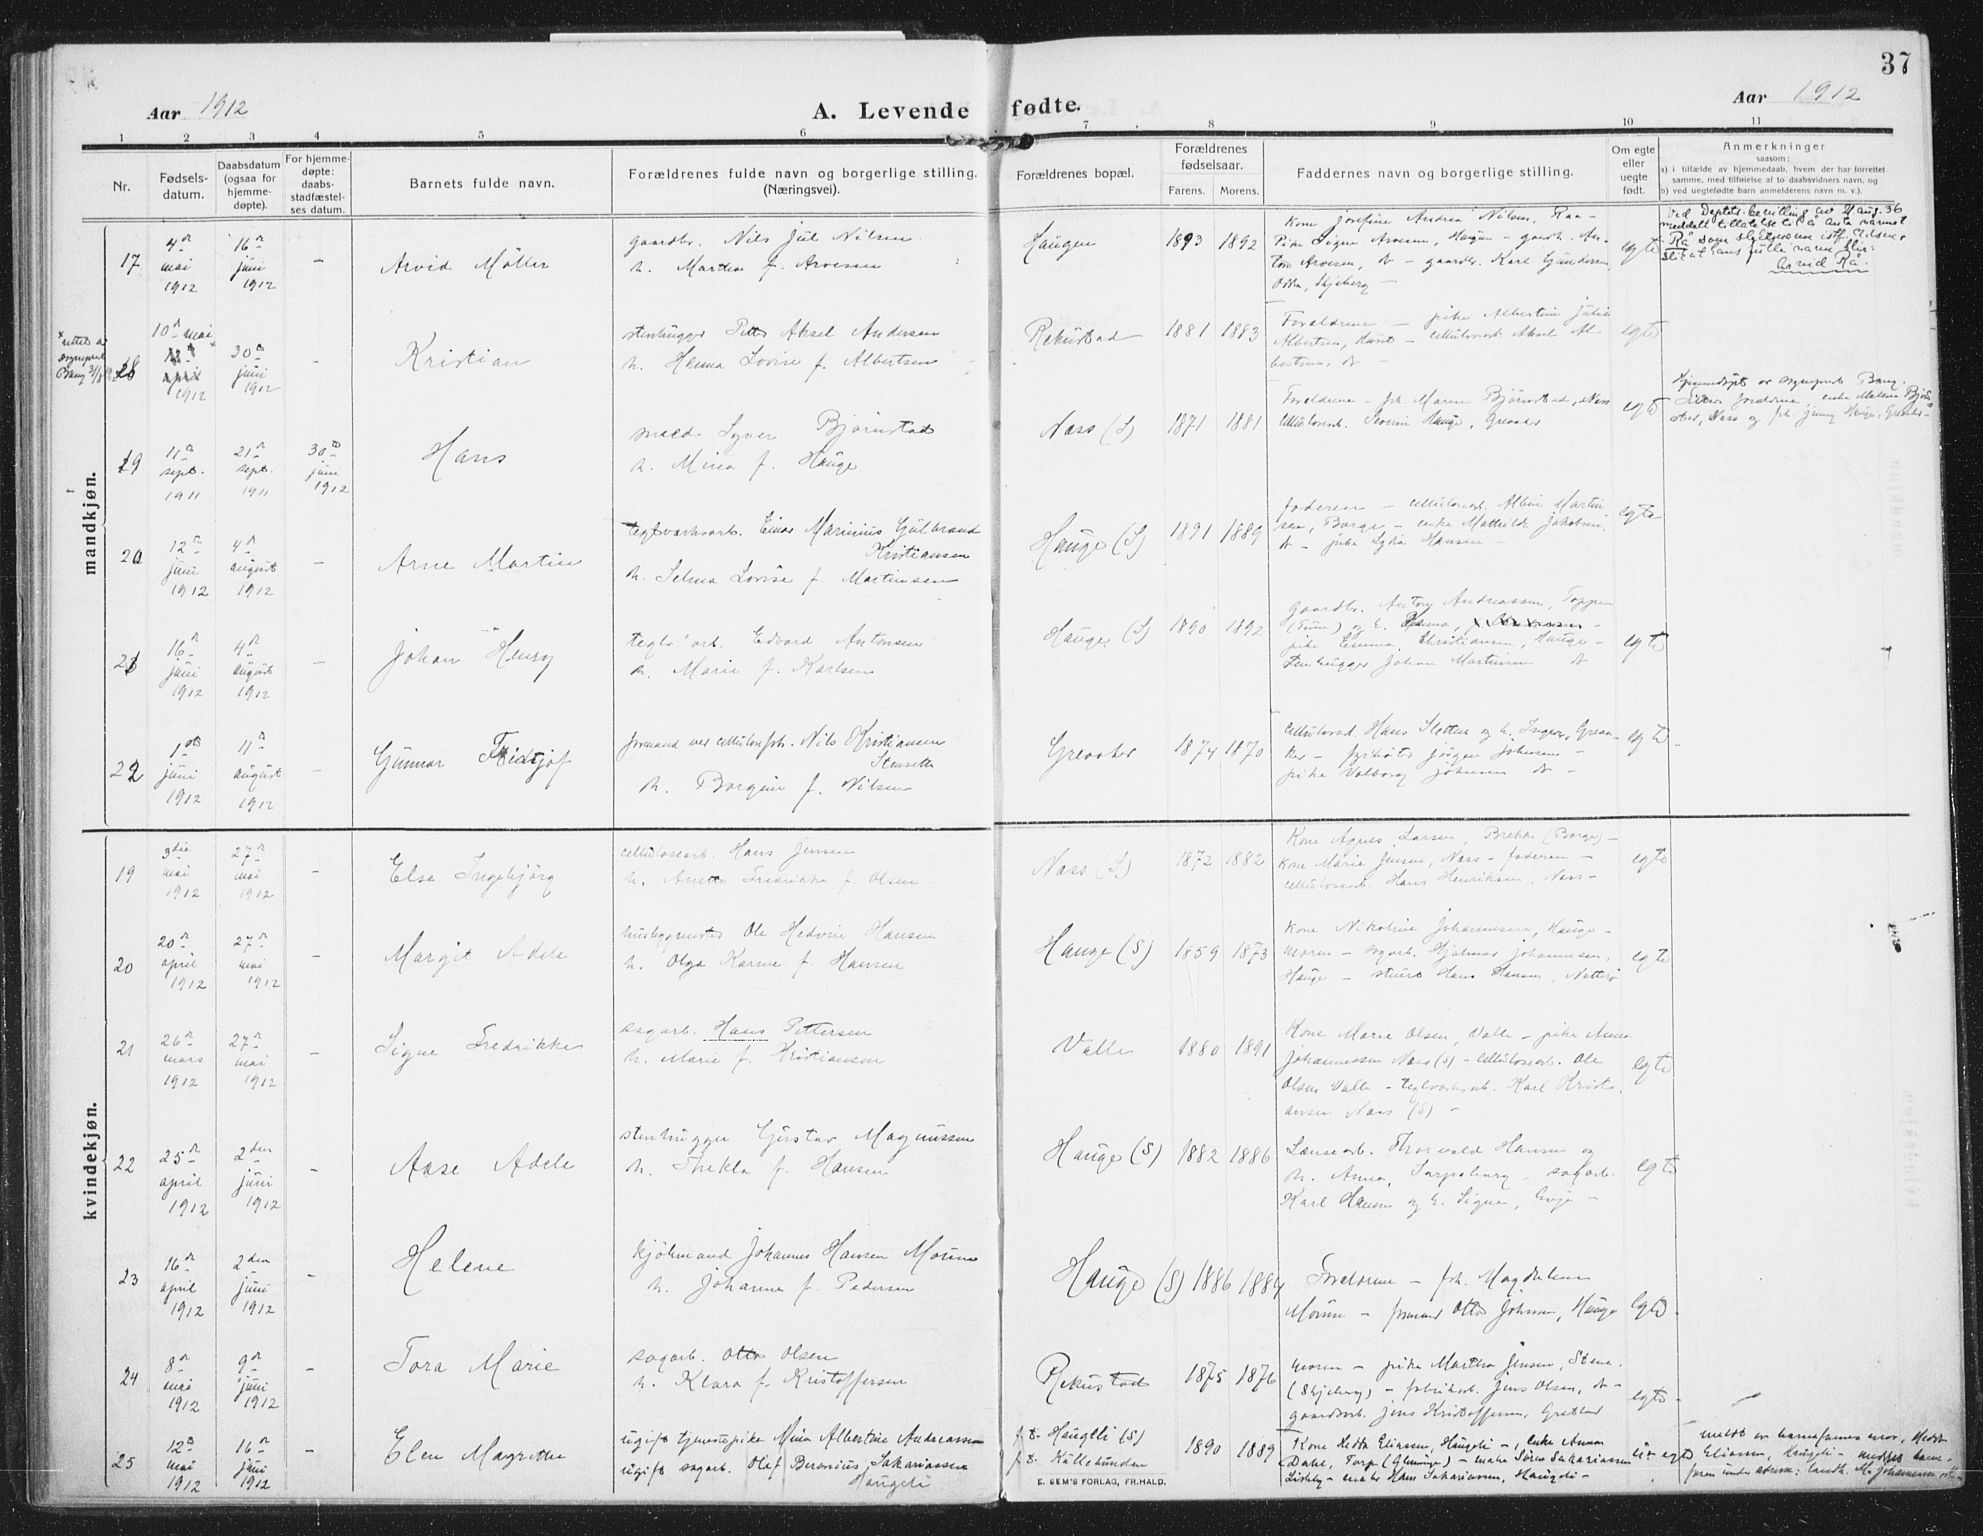 37
Aar 1912
A. Levende fødte.
Aar 1912
1 2 3 4 5 6 7 8 9 10 11
Nr.
Fødsels-
datum.
Daabsdatum
(ogsaa for
hjemme-
døpte).
For hjemme-
døpte:
daabs-
stadfæstel-
ses datum.
Barnets fulde navn.
Forældrenes fulde navn og borgerlige stilling.
(Næringsvei).
Forældrenes bopæl.
Forældrenes
fødselsaar.
Farens. Morens.
Faddernes navn og borgerlige stilling.
Om egte
eller
uegte
født.
Anmerkninger
saasom:
a) i tilfælde av hjemmedaab, hvem der har forrettet
samme, med tilføielse af to daabsvidners navn, og
b) ved uegtefødte barn anmelderens navn m. v.).
mandkjøn.
17
4de mai 1912
16de juni 1912
–
Arvid Møller
gaardbr. Nils Jul Nilsen
h. Martha f. Arvesen
Haugen
1893 1892
Kone Josefine Andrea Nilsen, Raa –
Pike Signe Arvesen, Haugen – gaardb. An-
ton Arvesen, do – gaardbr. Karl Gundersen
Skjeberg –
egte
Rå som slektsnavn istf. Nilsen,
slik at hans fulle navn blir
Arvid Rå.
18
10de mai
april
1912
30te juni 1912
–
Kristian
stenhugger Petter Aksel Andersen
h. Hanna Lovise f. Albertsen
Rekustad
1881 1883
Foreldrene – pike Albertine Julie
Albertsen, – cellulosearb. Aksel Al-
bertsen, do –
egte
19
11te sept. 1911
21de sept. 1911
30te juni 1912
Hans
Syver Bjørnstad
h. Mina f. Hauge
Næss (S)
1871 1881
Foreldrene – frk. Maren Bjørnstad, Næss
cellulosearb. Severin Hauge, Greaaker
egte
Hjemmedøpt av sogneprest Bang.
20
12te juni 1912
4de august 1912
–
Arne Martin
teglverksarb. Einar Marinius Gulbrand
Kristiansen
h. Selma Lovise f. Martinsen
Hauge (S)
1891 1889
faderen – cellulosearb. Albin Martin
sen, Borge – enke Mathilde Jakobsen,
do – pike Lydia Hansen –
egte
21
16de juni 1912
4de august 1912
–
Johan Henry
teglv. arb. Edvard Antonsen
h. Marie f. Karlsen
Hauge (S)
1890 1892
gaardbr. Antony Andreassen, Toppen
(Tune) og h.
pike Emma Christiansen, Hauge –
stenhugger Johan Martinsen do
egte
22
1ste juni 1912
11te august 1912
–
Gunnar Fridtjof
formand ved cellulosefab. Nils Kristiansen
Stenseth
h. Borgine f. Nilsen
Greaaker
1874 1870
cellulosearb. Hans Sletten og h. Inger, Greaa-
ker – fyrbøter Jørgen Johansen –
pike Valborg Johansen do –
egte
kvindekjøn.
19
3die mai 1912
27de mai 1912
–
Else Ingebjørg
cellulosearb. Hans Jensen
h. Anette Fredrikke f. Olsen
Næss (S)
1872 1882
Kone Agnes Larsen, Brekke (Borge) –
kone Marie Jensen, Næss – faderen –
cellulosearb. Hans Henriksen, Næss –
egte
20
20de april 1912
27de mai 1912
–
Margit Adele
husbygmester Ole Hedvin Hansen
h. Olga Karine f. Hansen
Hauge (S)
1859 1873
Kone Nikoline Johannesen, Hauge –
moren – sagarb. Hjalmar Johannesen,
Hauge – Hans Hansen,
egte
21
26de mars 1912
27de mai 1912
–
Signe Fredrikke
sagarb. Hans Pettersen
h. Marie f. Kristiansen
Valle
1880 1891
Kone Marie Olsen, Valle – pike Anna
Johannessen Næss (S) – cellulosearb. Ole
Olsen Valle – teglverksarb. Karl Kristi-
ansen Næss (S) –
egte
22
25de april 1912
2den juni 1912
–
Aase Adele
stenhugger Gustav Magnussen
h. Thekla f. Hansen
Hauge (S)
1882 1886
Lænsearb. Thorvald Hansen og
h. Anna, Sarpsborg – sagarb.
Karl Hansen og h. Signe, –
egte
23
16de april 1912
2den juni 1912
–
Helene
kjøbmand Johannes Hansen Mørum
h. Johanne f. Pedersen
Hauge (S)
1886 1884
Foreldrene – frk. Magdalena
Mørum – formand Otto Johnsen, Hauge
egte
24
8de mai 1912
9de juni 1912
–
Tora Marie
sagarb. Otto Olsen
h. Klara f. Kristoffersen
Rekustad
1875 1876
moren – pike Martha Jensen, Stene
(Skjeberg) – fabrikarb. Jens Olsen, do –
gaardarb. Jens Kristoffersen, Gretland
egte
25
12te mai 1912
16de juni 1912
–
Elen Magrethe
ugift tjenestepike Mina Albertine Andreassen
ugift sagarb. Olef Beronius Sakariassen
Haugeli
f. t. Haugeli (S)
f. t. Kullebunden
1890 1889
Kone Hedda Eliasen, Haugeli – enke Anna
Dahl, Torp (Glemminge) – make Søren Sakariassen
– Hans Sakariassen, Haugeli –
u- egte
meldt av barnefarens mor, Hedda
Eliasen, Haugeli –
E. SEM'S FORLAG, FR.HALD.